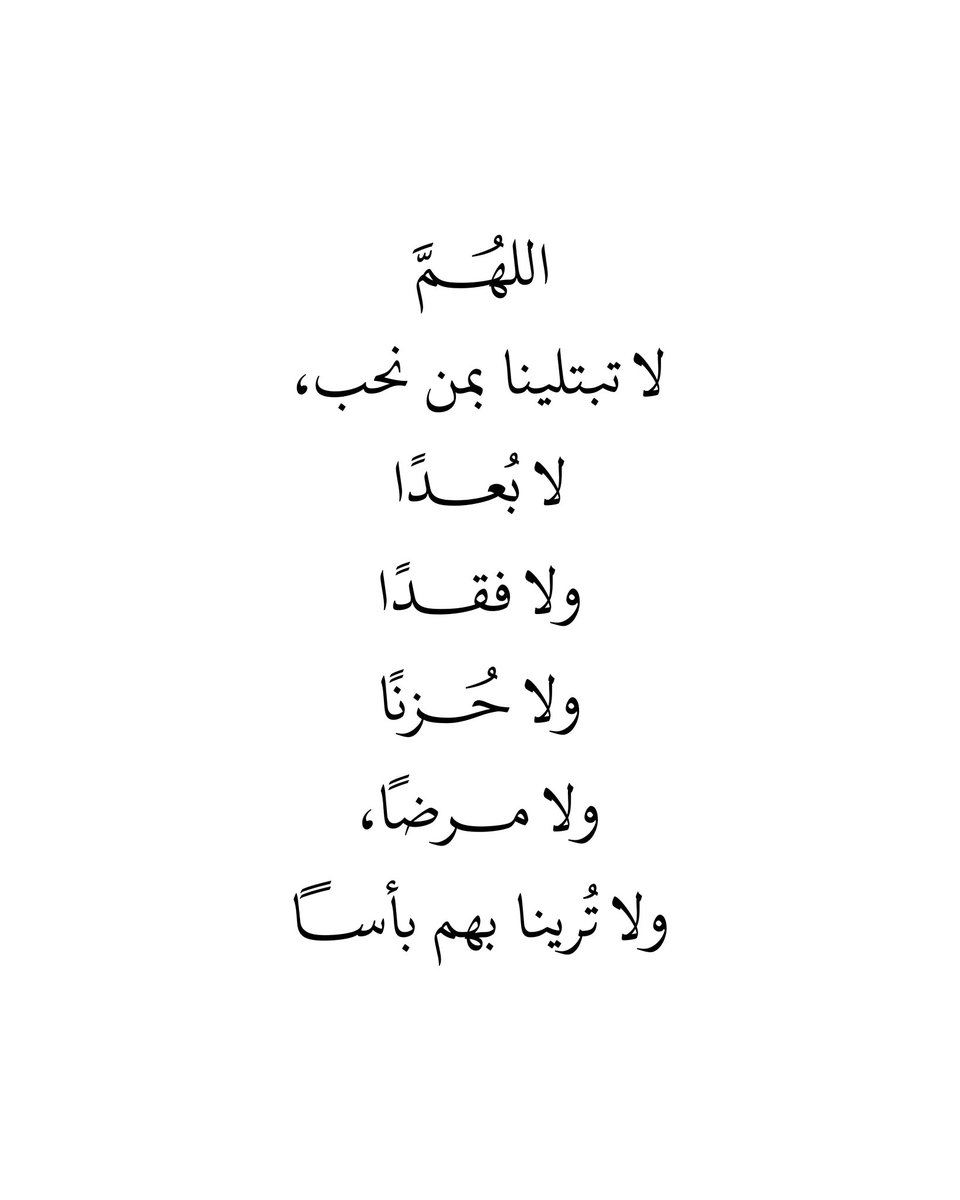 اللهُـــمَّ
لا تبتلينا بمن نحب،
لا بُعـــدًا
ولا فقـــدًا
ولا حُـــزنًا
ولا مـــرضًا،
ولا تُرينا بهم بأســـًا